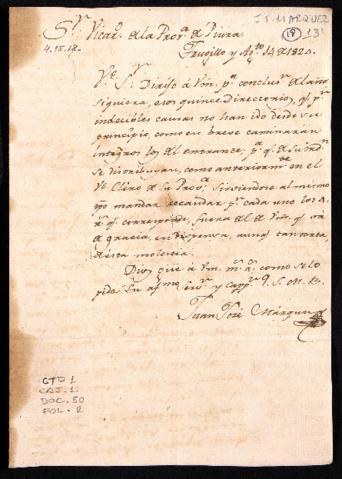 J. J. MARQUEZ
18 131
Sr. Vicar.o de la Prov.a de Piura
4.15.12.
Truxillo y Ag.to 14 de 1820.
Ve. Sr. Dirijo á Vm. p.a conclus.n del año
siquiera, esos quince Directorios, q.e p.r
indecibles causas no han ido desde su
principio, como en breve caminarán
integros los del entrante, p.a q.e de su ord.n
se distribuyan, como anteriorm.te en el
Ve. Clero de su Prov.a sirviendose al mismo
tpo mandar recaudar p.r cada uno los 4
r.s q.e corresponde, fuera del de Vm. q.e vá
de gracia, en dispensa, aunq.e tan corta,
de esta molestia.
Dios gue á Vm. m.s a.s como se lo
pide su af.mo Serv.r y Capp.n Q. S. M. B.
Juan José Márquez
CTD 1
CAJ. 1
DOC. 50
FOL. 2